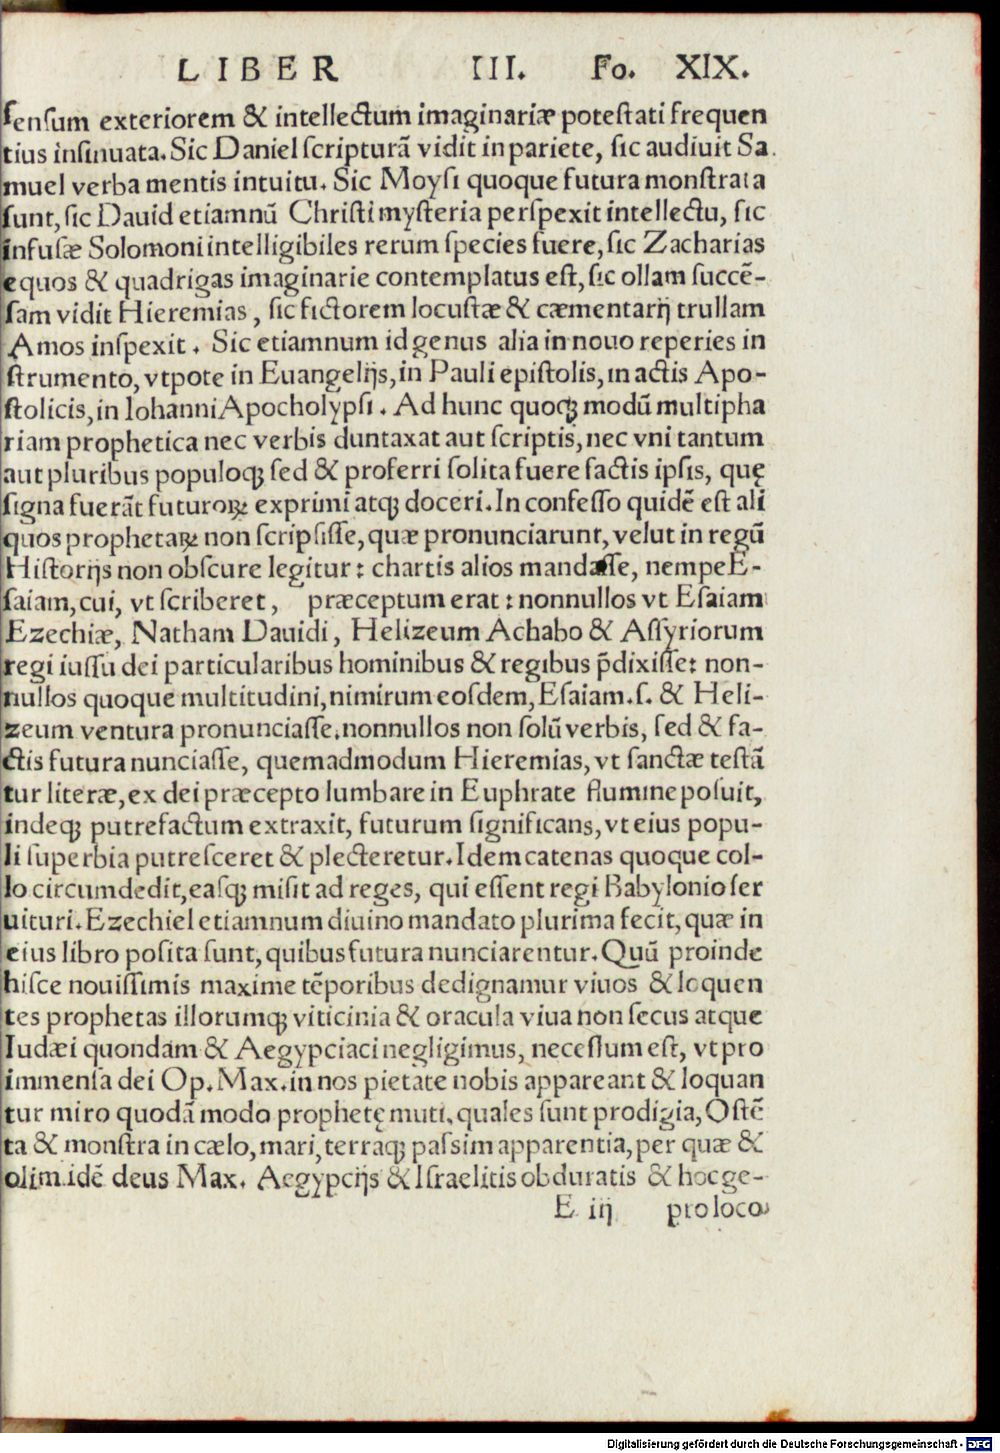 LIBER III. Fo. XIX.
ſenſum exteriorem & intellectum imaginariæ poteſtati frequen
tius inſinuata. Sic Daniel ſcripturā vidit in pariete, ſic audiuit Sa
muel verba mentis intuitu. Sic Moyſi quoque futura monſtrata
ſunt, ſic Dauid etiamnū Chriſti myſteria perſpexit intellectu, ſic
infuſæ Solomoni intelligibiles rerum ſpecies fuere, ſic Zacharias
equos & quadrigas imaginarie contemplatus eſt, ſic ollam ſuccē-
ſam vidit Hieremias, ſic fictorem locuſtæ & cæmentarij trullam
Amos inſpexit. Sic etiamnum id genus alia in nouo reperies in
ſtrumento, vtpote in Euangelijs, in Pauli epiſtolis, in actis Apo-
ſtolicis, in Iohanni Apocholypſi. Ad hunc quoqꝫ modū multipha
riam prophetica nec verbis duntaxat aut ſcriptis, nec vni tantum
aut pluribus populoqꝫ ſed & proferri ſolita fuere factis ipſis, quę
ſigna fuerāt futuroꝝ exprimi atqꝫ doceri. In confeſſo quidē eſt ali
quos prophetaꝝ non ſcripſiſſe, quæ pronunciarunt, velut in regū
Hiſtorijs non obſcure legitur: chartis alios mandaſſe, nempe E-
ſaiam, cui, vt ſcriberet, præceptum erat: nonnullos vt Eſaiam
Ezechiæ, Natham Dauidi, Helizeum Achabo & Aſſyriorum
regi iuſſu dei particularibus hominibus & regibus p̄dixiſſe: non-
nullos quoque multitudini, nimirum eoſdem, Eſaiam. ſ. & Heli-
zeum ventura pronunciaſſe. nonnullos non ſolū verbis, ſed & fa-
ctis futura nunciaſſe, quemadmodum Hieremias, vt ſanctæ teſtā
tur literæ, ex dei præcepto lumbare in Euphrate flumine poſuit,
indeqꝫ putrefactum extraxit, futurum ſignificans, vt eius popu-
li ſuperbia putreſceret & plecteretur. Idem catenas quoque col-
lo circumdedit, eaſqꝫ miſit ad reges, qui eſſent regi Babylonio ſer
uituri. Ezechiel etiamnum diuino mandato plurima fecit, quæ in
eius libro poſita ſunt, quibus futura nunciarentur. Quū proinde
hiſce nouiſſimis maxime tēporibus dedignamur viuos & loquen
tes prophetas illorumqꝫ viticinia & oracula viua non ſecus atque
Iudæi quondam & Aegypciaci negligimus, neceſſum eſt, vt pro
immenſa dei Op. Max. in nos pietate nobis appareant & loquan
tur miro quodā modo prophetę muti, quales ſunt prodigia, Oſtē
ta & monſtra in cælo, mari, terraqꝫ paſsim apparentia, per quæ &
olim idē deus Max. Aegypcijs & Iſraelitis obduratis & hoc ge-
E iij proloco
Digitalisierung gefördert durch die Deutsche Forschungsgemeinschaft - DFG